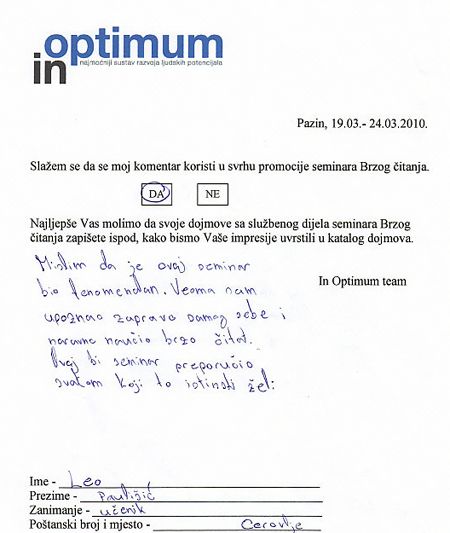 optimum
in
najmoćniji sustav razvoja ljudskih potencijala
Pazin, 19.03.- 24.03.2010.
Slažem se da se moj komentar koristi u svrhu promocije seminara Brzog čitanja.
DA NE
Najljepše Vas molimo da svoje dojmove sa službenog dijela seminara Brzog
čitanja zapišete ispod, kako bismo Vaše impresije uvrstili u katalog dojmova.
In Optimum team
Mislim da je ovaj seminar
bio fenomenalan. Veoma sam
upoznao zapravo samog sebe i
naravno naučio brzo čitat.
Ovaj bi seminar preporučio
svakom koji to istinski želi
Ime - Leo
Prezime -
Zanimanje - učenik
Poštanski broj i mjesto - Cerovlje